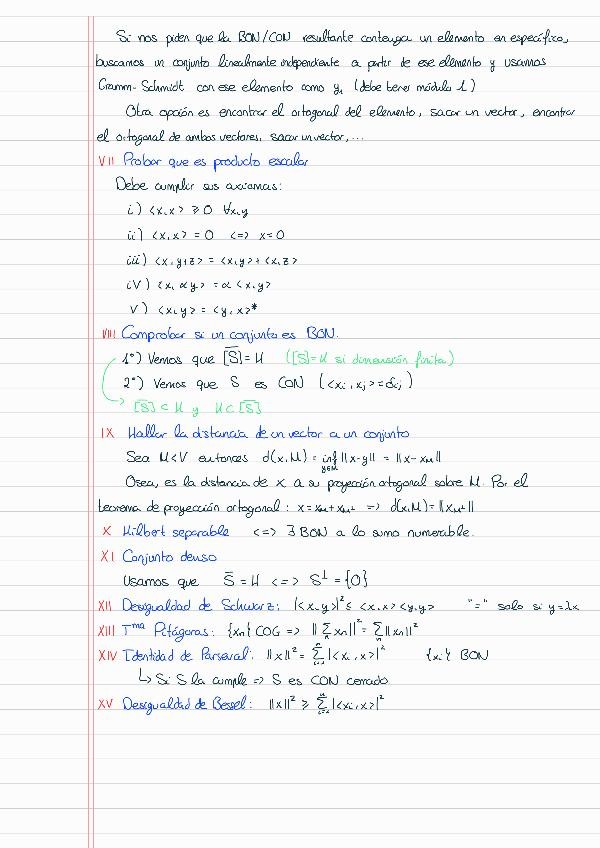 Si nos piden que la BON/CON resultante contenga un elemento en específico,
buscamos un conjunto linealmente independiente a partir de ese elemento y usamos
Gramm-Schmidt con ese elemento como y₁ (debe tener módulo 1)
Otra opción es encontrar el ortogonal del elemento, sacar un vector, encontrar
el ortogonal de ambos vectores, sacar un vector, ...
VII Probar que es producto escalar
Debe cumplir sus axiomas:
i) <x,x> ≥ 0 ∀x,y
ii) <x,x> = 0 <=> x=0
iii) <x,y+z> = <x,y> + <x,z>
iv) <x, αy> = α <x,y>
v) <x,y> = <y,x>*
VIII Comprobar si un conjunto es BON.
1º) Vemos que [S̅]̅ = H ([S]=H si dimensión finita)
2º) Vemos que S es CON (<xᵢ, xⱼ> = δᵢⱼ)
[S̅]̅ ⊂ H y H ⊂ [S̅]̅
IX Hallar la distancia de un vector a un conjunto
Sea M<V entonces d(x,M) = inf_{y∈M} ||x-y|| = ||x-x_M||
Osea, es la distancia de x a su proyección ortogonal sobre M. Por el
teorema de proyección ortogonal: x = x_M + x_M⊥ => d(x,M) = ||x_M⊥||
X Hilbert separable <=> ∃ BON a lo sumo numerable.
XI Conjunto denso
Usamos que S̅ = H <=> S⊥ = {0}
XII Desigualdad de Schwarz: |<x,y>|² ≤ <x,x><y,y> "=" solo si y=λx
XIII Tma Pitágoras: {xₙ} COG => ||∑ₙ xₙ||² = ∑ₙ ||xₙ||²
XIV Identidad de Parseval: ||x||² = ∑ᵢ₌₁ⁿ |<xᵢ,x>|² {xᵢ} BON
↳ Si S la cumple => S es CON cerrado
XV Desigualdad de Bessel: ||x||² ≥ ∑ᵢ₌₁ⁿ |<xᵢ,x>|²